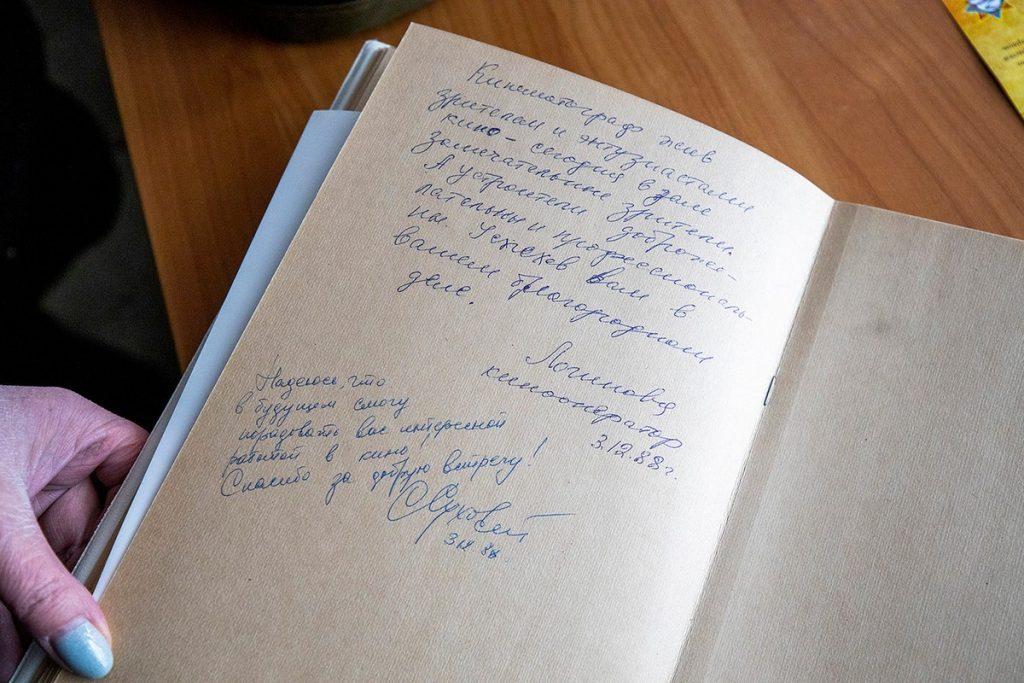 Кинематограф жив
зрителем и энтузиастами
кино – сегодня в зале
замечательные зрители.
А устроители доброже-
лательны и профессиональ-
ны. Успехов вам в
вашем благородном
деле.
Логинова
кинооператор
3.12.88г.
Надеюсь, что
в будущем смогу
порадовать вас интересной
работой в кино,
Спасибо за добрую встречу!
Суховей
3 12 88г.